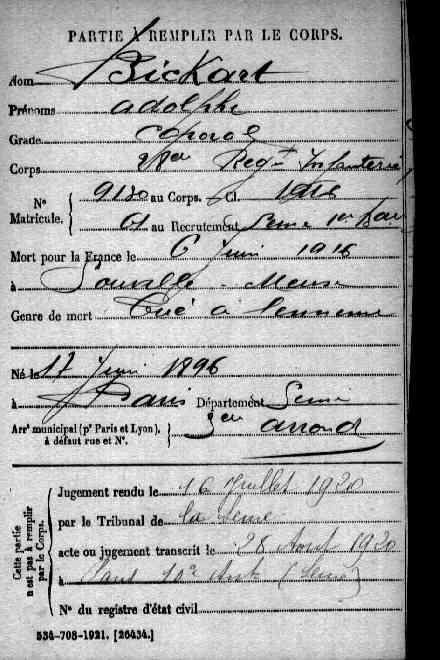 PARTIE À REMPLIR PAR LE CORPS.
Nom Bickart
Prénoms adolphe
Grade caporal
Corps Regt Infanterie
N° Matricule. { 9130 au Corps. Cl. 1916
61 au Recrutement Seine 1er Bau
Mort pour la France le 6 Juin 1916
à Souville - Meuse
Genre de mort Tué à l'ennemi
Né le 17 Juin 1896
à Paris Département Seine
Arrt municipal (pr Paris et Lyon), à défaut rue et N°. } arrond
Cette partie n'est pas à remplir par le Corps.
Jugement rendu le 16 Juillet 1920
par le Tribunal de la Seine
acte ou jugement transcrit le 28 Aout 1920
à Paris 10e Arrt (Seine)
N° du registre d'état civil
534-708-1921. [26434.]